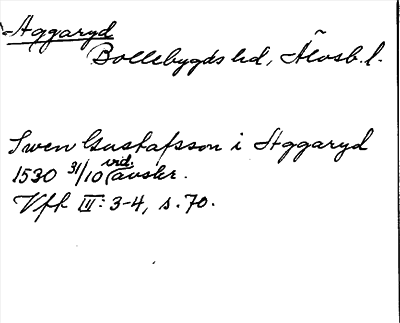 Aggaryd
Bollebygds hd, Älvsb. l.
Swen Gustafsson i Aggaryd
1530 31/10 (vid. avskr.
Vfk III: 3-4, s. 70.